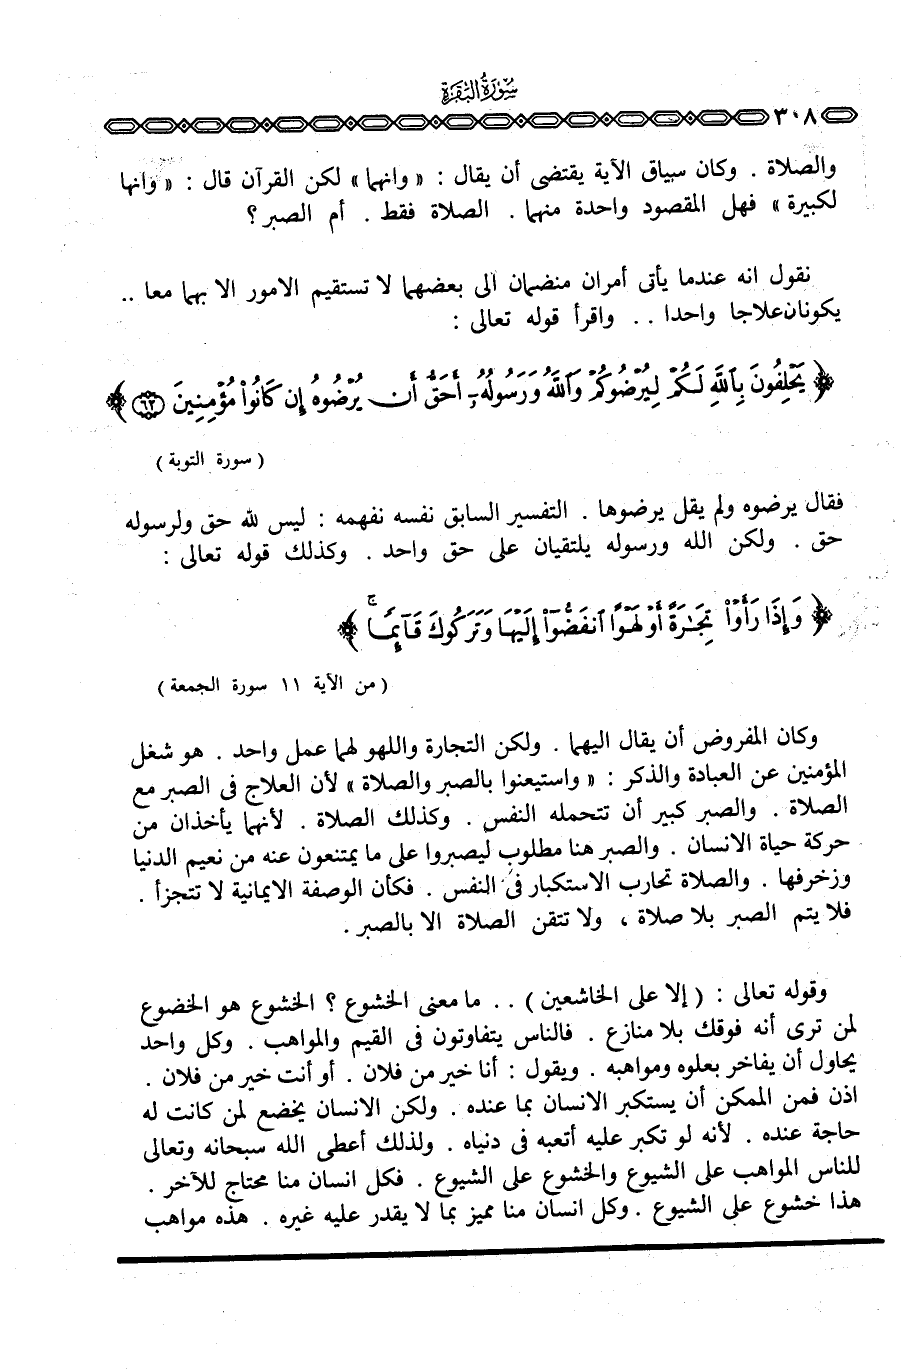 سورة البقرة
٣٠٨
والصلاة . وكان سياق الآية يقتضى أن يقال : « وانهما » لكن القرآن قال : « وانها
لكبيرة » فهل المقصود واحدة منهما . الصلاة فقط . أم الصبر ؟
نقول انه عندما يأتى أمران منضمان الى بعضهما لا تستقيم الامور الا بهما معا ..
يكونان علاجا واحدا .. واقرأ قوله تعالى :
﴿ يَحْلِفُونَ بِٱللَّهِ لَكُمْ لِيُرْضُوكُمْ وَٱللَّهُ وَرَسُولُهُۥٓ أَحَقُّ أَن يُرْضُوهُ إِن كَانُوا۟ مُؤْمِنِينَ ٦٢ ﴾
( سورة التوبة )
فقال يرضوه ولم يقل يرضوها . التفسير السابق نفسه نفهمه : ليس لله حق ولرسوله
حق . ولكن الله ورسوله يلتقيان على حق واحد . وكذلك قوله تعالى :
﴿ وَإِذَا رَأَوْا۟ تِجَٰرَةً أَوْ لَهْوًا ٱنفَضُّوٓا۟ إِلَيْهَا وَتَرَكُوكَ قَآئِمًا ۚ ﴾
( من الآية ١١ سورة الجمعة )
وكان المفروض أن يقال اليهما . ولكن التجارة واللهو لهما عمل واحد . هو شغل
المؤمنين عن العبادة والذكر : « واستيعنوا بالصبر والصلاة » لأن العلاج فى الصبر مع
الصلاة . والصبر كبير أن تتحمله النفس . وكذلك الصلاة . لأنهما يأخذان من
حركة حياة الانسان . والصبر هنا مطلوب ليصبروا على ما يمتنعون عنه من نعيم الدنيا
وزخرفها . والصلاة تحارب الاستكبار فى النفس . فكأن الوصفة الايمانية لا تتجزأ .
فلا يتم الصبر بلا صلاة ، ولا تتقن الصلاة الا بالصبر .
وقوله تعالى : ( إلا على الخاشعين ) .. ما معنى الخشوع ؟ الخشوع هو الخضوع
لمن ترى أنه فوقك بلا منازع . فالناس يتفاوتون فى القيم والمواهب . وكل واحد
يحاول أن يفاخر بعلوه ومواهبه . ويقول : أنا خير من فلان . أو أنت خير من فلان .
اذن فمن الممكن أن يستكبر الانسان بما عنده . ولكن الانسان يخضع لمن كانت له
حاجة عنده . لأنه لو تكبر عليه أتعبه فى دنياه . ولذلك أعطى الله سبحانه وتعالى
للناس المواهب على الشيوع والخشوع على الشيوع . فكل انسان منا محتاج للآخر .
هذا خشوع على الشيوع . وكل انسان منا مميز بما لا يقدر عليه غيره . هذه مواهب